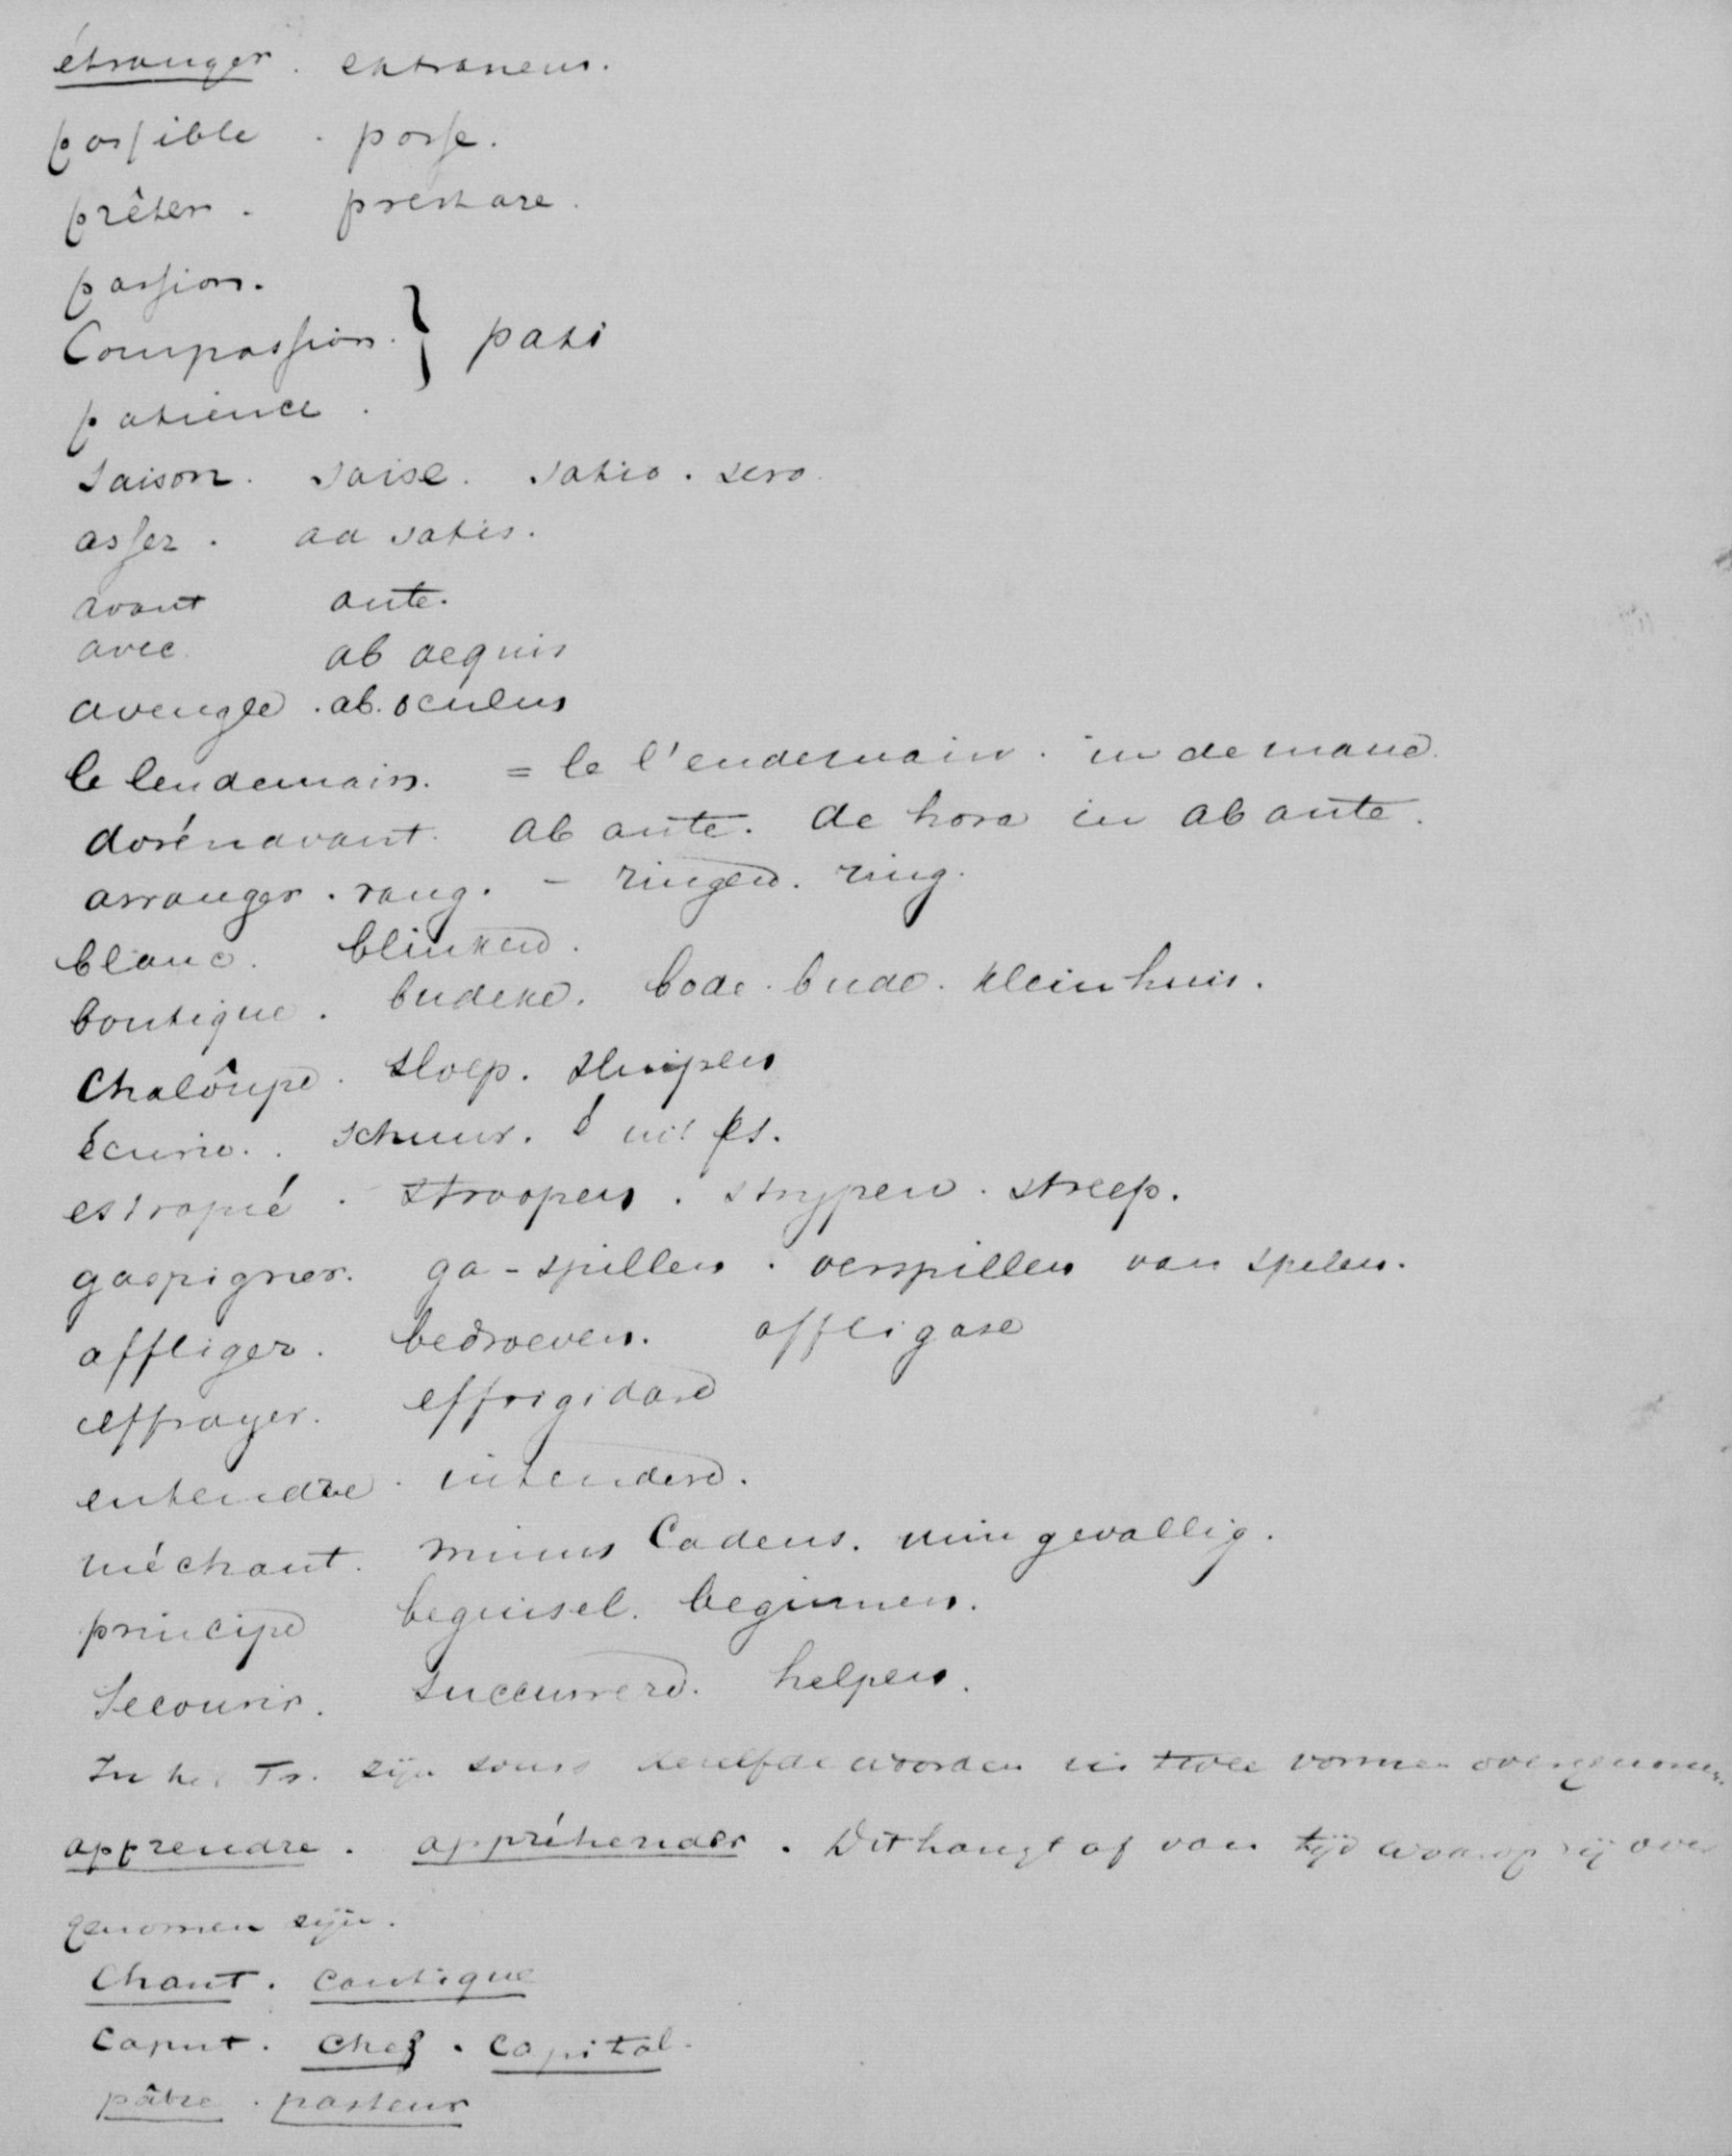 étranger. extraneus.
possible. posse.
prêter. prestare.
passion.
Compassion. } pati
patience.
saison. saise. satio. sero.
assez. ad satis.
avant ante.
avec. ab aequis
aveugle. ab. oculus
le lendemain. = le l'endemain. in de mane.
dorénavant. ab ante. de hora in ab ante.
arranger. rang. - ringen. ring.
blanc. blinken.
boutique. budeke. bode. bude. klein huis.
Chalôupe. sloep. sluipen
écurie. schuur. é uit es.
estropié. stroopen. strypen. streep.
gaspigner. ga-spillen. verspillen van spelen.
affliger. bedroeven. affligare
effrayer. effrigidare
entendre. intendere.
méchant. minus Cadens. min gevallig.
principe beginsel. beginnen.
Secourir. succurrere. helpen.
In het Fr. zijn soms dezelfde woorden in twee vormen overgenomen.
apprendre. appréhender. Dit hangt af van tijd waarop zij over
genomen zijn.
Chant. cantique
Caput. chef. capital.
pâtre. pasteur